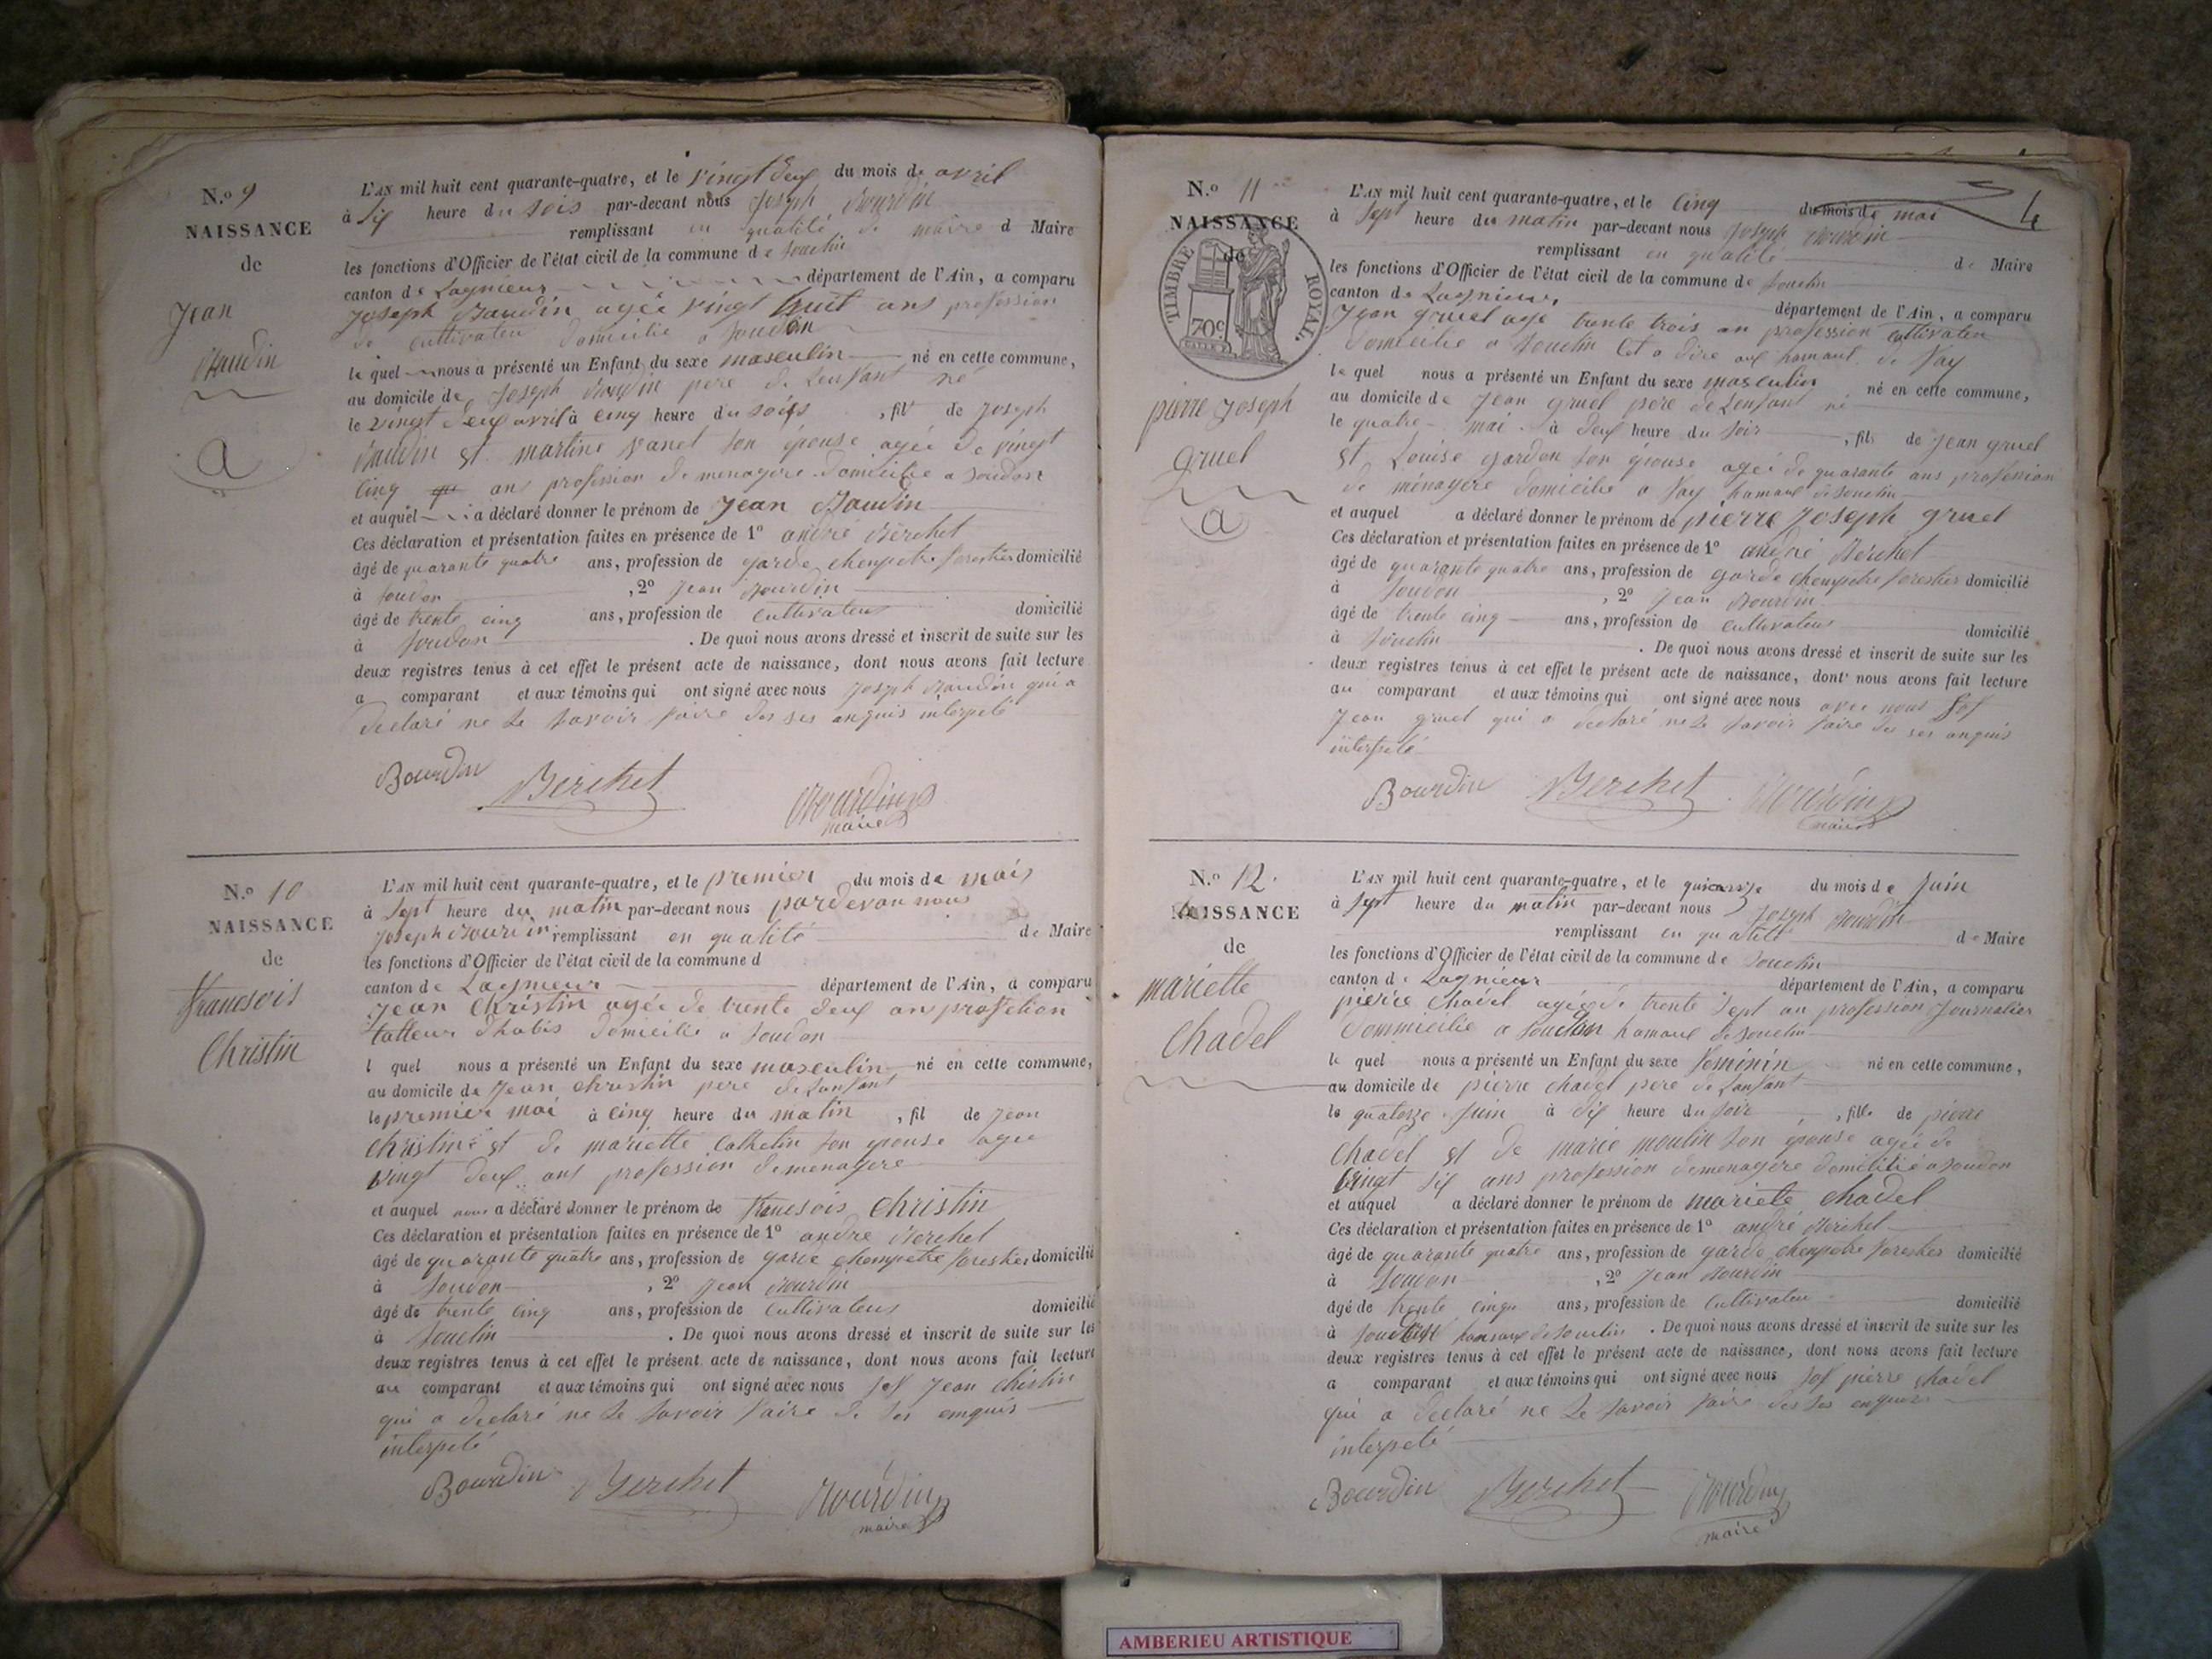 N.o 9
NAISSANCE
de
Jean
Baudin
a
L'AN mil huit cent quarante-quatre, et le vingt deux du mois de avril
à six heure du soir par-devant nous Joseph Bourdin
remplissant en qualité de maire d Maire
les fonctions d'Officier de l'état civil de la commune de Souclin
canton de Lagnieux département de l'Ain, a comparu
Joseph Baudin agée vingt huit ans profession
de cultivateu domicilié a Soudon
le quel nous a présenté un Enfant du sexe masculin né en cette commune,
au domicile de Joseph Baudin pere de Lenfant né
le vingt deux avril à cinq heure du soirs , fil de Joseph
Baudin et martine vanel son épouse agée de vingt
cinq ans profession de menagere domicilie a Soudon
et auquel a déclaré donner le prénom de Jean Baudin
Ces déclaration et présentation faites en présence de 1o andré Berchet
âgé de quarante quatre ans, profession de garde chenpetre forestier domicilié
à Soudon , 2o Jean Bourdin
âgé de trente cinq ans, profession de cultivateur domicilié
à Soudon . De quoi nous avons dressé et inscrit de suite sur les
deux registres tenus à cet effet le présent acte de naissance, dont nous avons fait lecture
a comparant et aux témoins qui ont signé avec nous Joseph Baudin qui a
declaré ne le savoir faire des ses anquis interpelé
Bourdin Berchet Bourdin
maire
N.o 10
NAISSANCE
de
francsois
Christin
L'AN mil huit cent quarante-quatre, et le premier du mois de mais
à sept heure du matin par-devant nous pardevan nous
Joseph Bourdin remplissant en qualité de Maire
les fonctions d'Officier de l'état civil de la commune d
canton de Lagnieux département de l'Ain, a comparu
Jean Christin agée de trente deux an profession
tailleur dhabis domicilie a Soudon
l quel nous a présenté un Enfant du sexe masculin né en cette commune,
au domicile de Jean christin pere de Lanfant
le premier mai à cinq heure du matin , fil de Jean
Christin et de mariette Cathelin son epouse agée
vingt deux ans profession de menagere
et auquel nous a déclaré donner le prénom de francsois Christin
Ces déclaration et présentation faites en présence de 1o andré Berchet
âgé de quarante quatre ans, profession de garde chenpetre forestier domicilié
à Soudon , 2o Jean Bourdin
âgé de trente cinq ans, profession de cultivateur domicilié
à Souclin . De quoi nous avons dressé et inscrit de suite sur les
deux registres tenus à cet effet le présent acte de naissance, dont nous avons fait lecture
au comparant et aux témoins qui ont signé avec nous sof Jean Christin
qui a declaré ne le savoir faire de ses enquis
interpelé
Bourdin Berchet Bourdin
maire
4
N.o 11
NAISSANCE
de
TIMBRE ROYAL.
70c
pierre Joseph
gruel
a
L'AN mil huit cent quarante-quatre, et le cinq du mois de mai
à sept heure du matin par-devant nous Joseph Bourdin
remplissant en qualité de Maire
les fonctions d'Officier de l'état civil de la commune de Souclin
canton de Lagnieux département de l'Ain, a comparu
Jean gruel agé trente trois an profession cultivateu
domicilie a Souclin Cet a dire aux hamaux de fay
le quel nous a présenté un Enfant du sexe masculin né en cette commune,
au domicile de Jean gruel pere de Lenfant né
le quatre mai à deux heure du soir , fils de Jean gruel
et Louise gardon son épouse agée de quarante ans profession
de ménagere domicilie a fay hamaux de Souclin
et auquel a déclaré donner le prénom de pierre Joseph gruel
Ces déclaration et présentation faites en présence de 1o andré Berchet
âgé de quarante quatre ans, profession de garde chenpetre forestier domicilié
à Soudon , 2o Jean Bourdin
âgé de trente cinq ans, profession de cultivateur domicilié
à Souclin . De quoi nous avons dressé et inscrit de suite sur les
deux registres tenus à cet effet le présent acte de naissance, dont nous avons fait lecture
au comparant et aux témoins qui ont signé avec nous avec nous sof
Jean gruel qui a declaré ne le savoir faire des ses anquis
interpelé
Bourdin Berchet Bourdin
maire
N.o 12
NAISSANCE
de
mariette
Chadel
L'AN mil huit cent quarante-quatre, et le quinze du mois de Juin
à sept heure du matin par-devant nous Joseph Bourdin
remplissant en qualité de Maire
les fonctions d'Officier de l'état civil de la commune de Souclin
canton de Lagnieux département de l'Ain, a comparu
pierre Chadel agée de trente sept an profession Journalier
Dommicilie a Soudon hamaux de Souclin
le quel nous a présenté un Enfant du sexe feminin né en cette commune,
au domicile de pierre chadel pere de Lanfant
le quatorze Juin à dix heure du soir , fille de pierre
Chadel et de marie moulin son épouse agée de
vingt six ans profession de menagere domicilié a Soudon
et auquel a déclaré donner le prénom de mariete chadel
Ces déclaration et présentation faites en présence de 1o andré Berchet
âgé de quarante quatre ans, profession de garde chenpetre forestier domicilié
à Soudon , 2o Jean Bourdin
âgé de trente cinqu ans, profession de Cultivateu domicilié
à hamaux de Souclin . De quoi nous avons dressé et inscrit de suite sur les
deux registres tenus à cet effet le présent acte de naissance, dont nous avons fait lecture
a comparant et aux témoins qui ont signé avec nous sof pierre chadel
qui a declaré ne le savoir faire des ses enquis
interpelé
Bourdin Berchet Bourdin
maire
AMBERIEU ARTISTIQUE